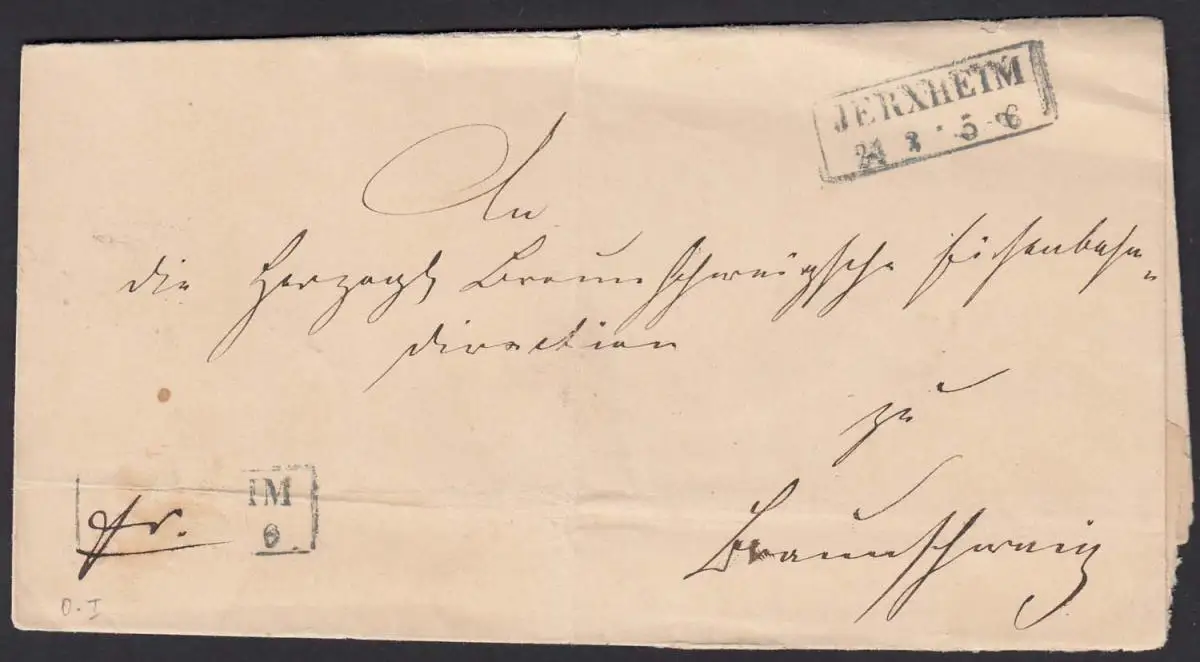 JERXHEIM
21 3 · 5-6
An
die Herzogl Braunschweigsche Eisenbahn-
direction
zu
Braunschweig
IM
6
fr.
O.I